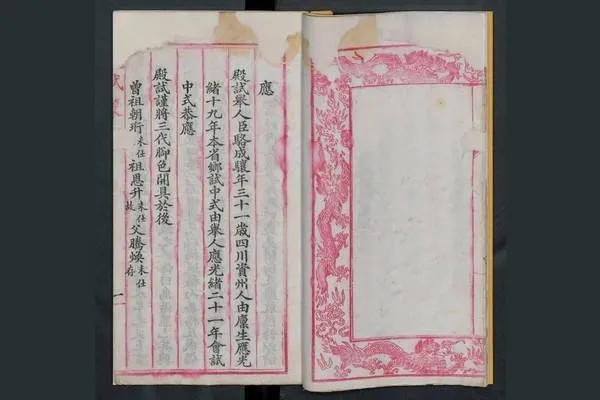 應
殿試舉人臣駱成驤年三十一歲四川資州人由廩生應光
緒十九年本省鄉試中式由舉人應光緒二十一年會試
中式恭應
殿試謹將三代腳色開具於後
曾祖朝珩未仕故祖恩升未仕父騰煥未仕存
一